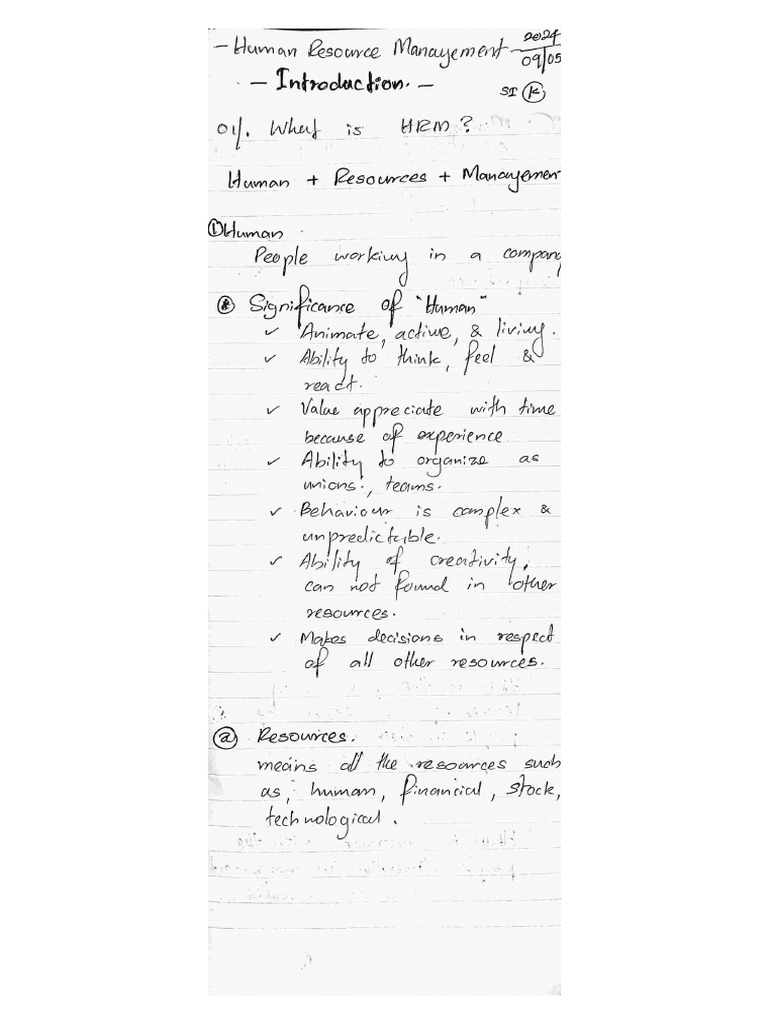 - Human Resource Management 2024
09/05
- Introduction. -
SI K
01/. What is HRM?
Human + Resources + Managemen
① Human
People working in a company
Significance of "Human"
✓ Animate, active, & living.
✓ Ability to think, feel &
react.
✓ Value appreciate with time
because of experience
✓ Ability to organize as
unions, teams.
✓ Behaviour is complex &
unpredictable.
✓ Ability of creativity,
can not found in other
resources.
✓ Makes decisions in respect
of all other resources.
ⓐ Resources.
means all the resources such
as, human, financial, stock,
technological.